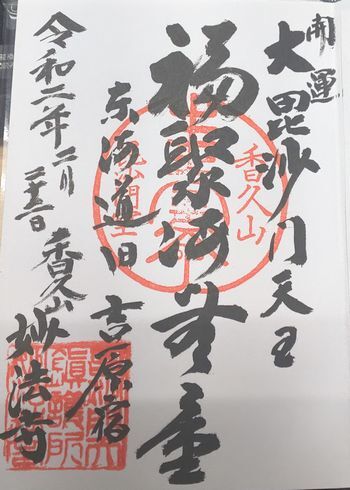 開運
大毘沙門天王
福聚海無量
香久山
東海道旧吉原宿
令和二年二月二十三日
香久山妙法寺